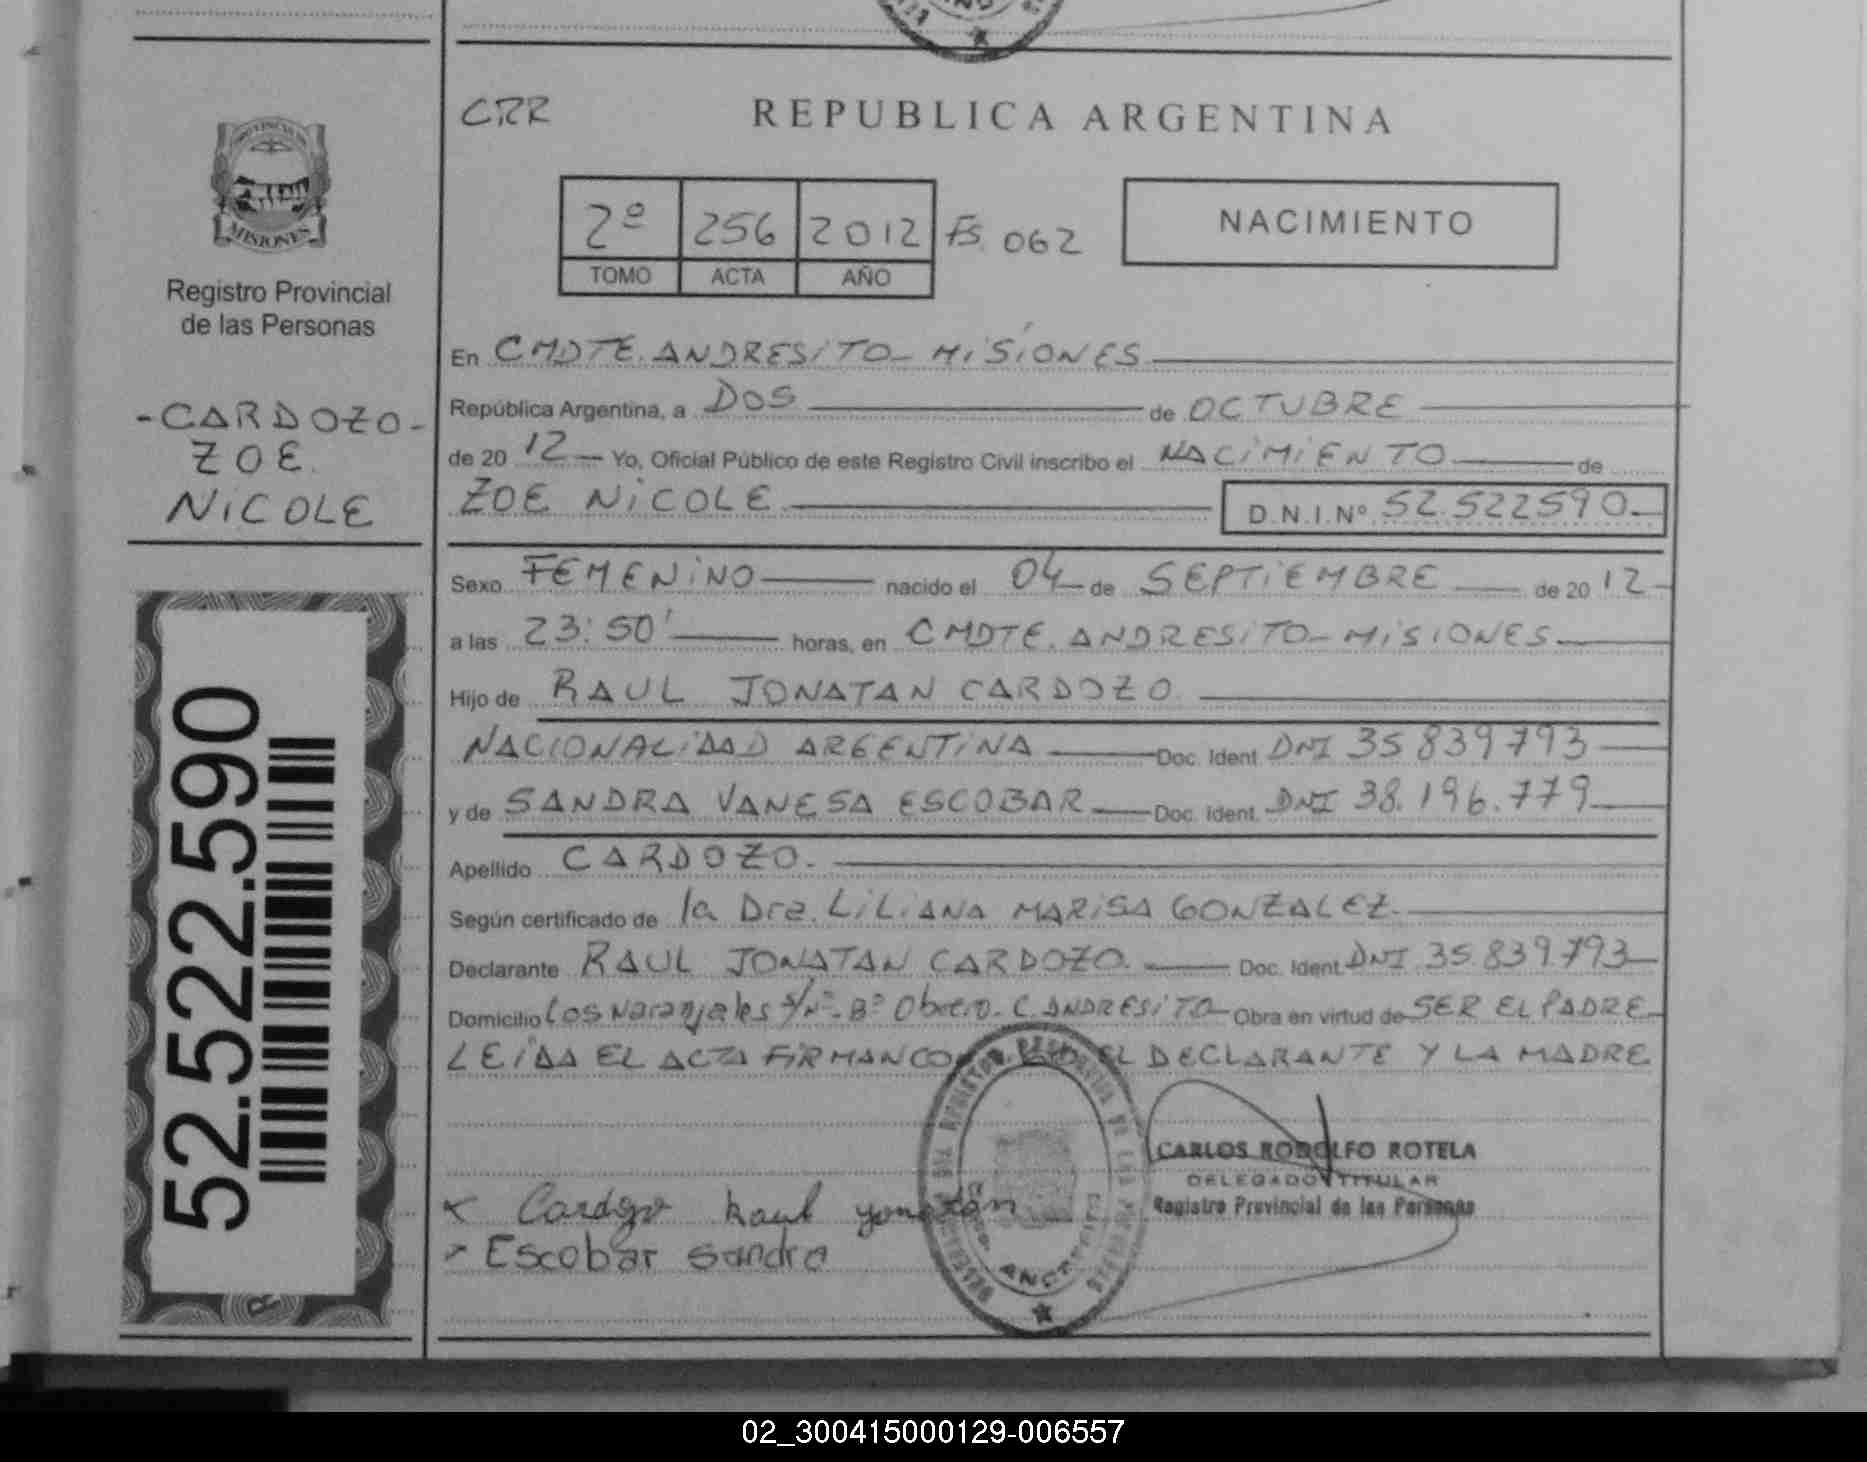 CRR
REPUBLICA ARGENTINA
2º 256 2012 Fs. 062
TOMO ACTA AÑO
NACIMIENTO
MISIONES
Registro Provincial
de las Personas
- CARDOZO -
ZOE
NICOLE
52.522.590
En CMDTE. ANDRESITO - MISIONES
República Argentina, a DOS de OCTUBRE
de 20 12 Yo, Oficial Público de este Registro Civil inscribo el NACIMIENTO de
ZOE NICOLE D.N.I.Nº 52.522590
Sexo FEMENINO nacido el 04 de SEPTIEMBRE de 20 12
a las 23:50' horas, en CMDTE. ANDRESITO - MISIONES
Hijo de RAUL JONATAN CARDOZO
NACIONALIDAD ARGENTINA Doc. Ident. DNI 35 839793
y de SANDRA VANESA ESCOBAR Doc. Ident. DNI 38.196.779
Apellido CARDOZO.
Según certificado de la Dra. LILIANA MARISA GONZALEZ.
Declarante RAUL JONATAN CARDOZO. Doc. Ident. DNI 35.839.793
Domicilio Los Naranjales S/Nº - Bº Obrero - C. ANDRESITO Obra en virtud de SER EL PADRE
LEIDA EL ACTA FIRMAN CONMIGO EL DECLARANTE Y LA MADRE
CARLOS RODOLFO ROTELA
DELEGADO TITULAR
Registro Provincial de las Personas
Cardozo Raul yonatán
Escobar Sandra
02_300415000129-006557